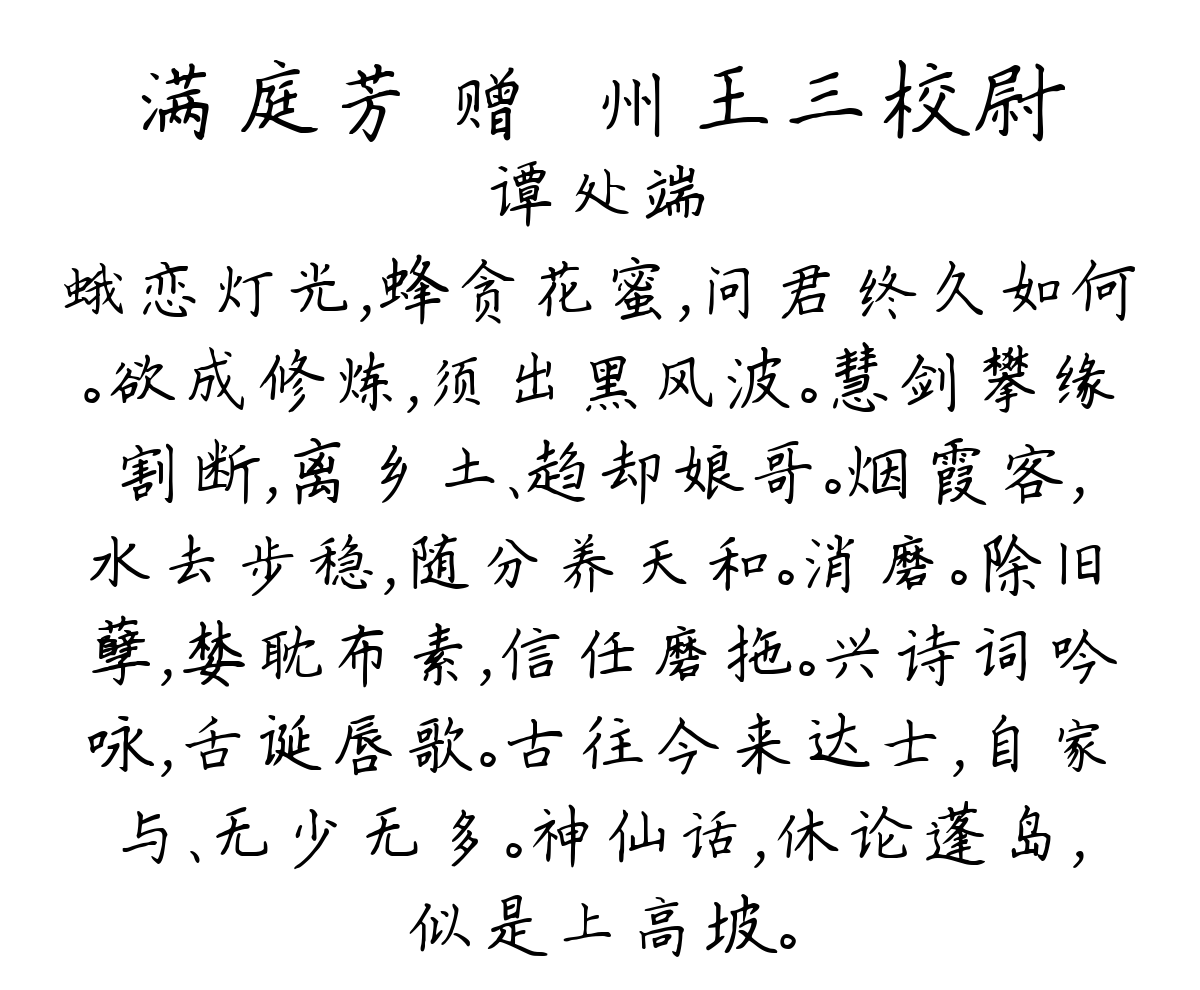 满庭芳 赠 州王三校尉
谭处端
蛾恋灯光,蜂贪花蜜,问君终久如何
。欲成修炼,须出黑风波。慧剑攀缘
割断,离乡土、趋却娘哥。烟霞客,
水去步稳,随分养天和。消磨。除旧
孽,婪耽布素,信任磨拖。兴诗词吟
咏,舌诞唇歌。古往今来达士,自家
与、无少无多。神仙话,休论蓬岛,
似是上高坡。